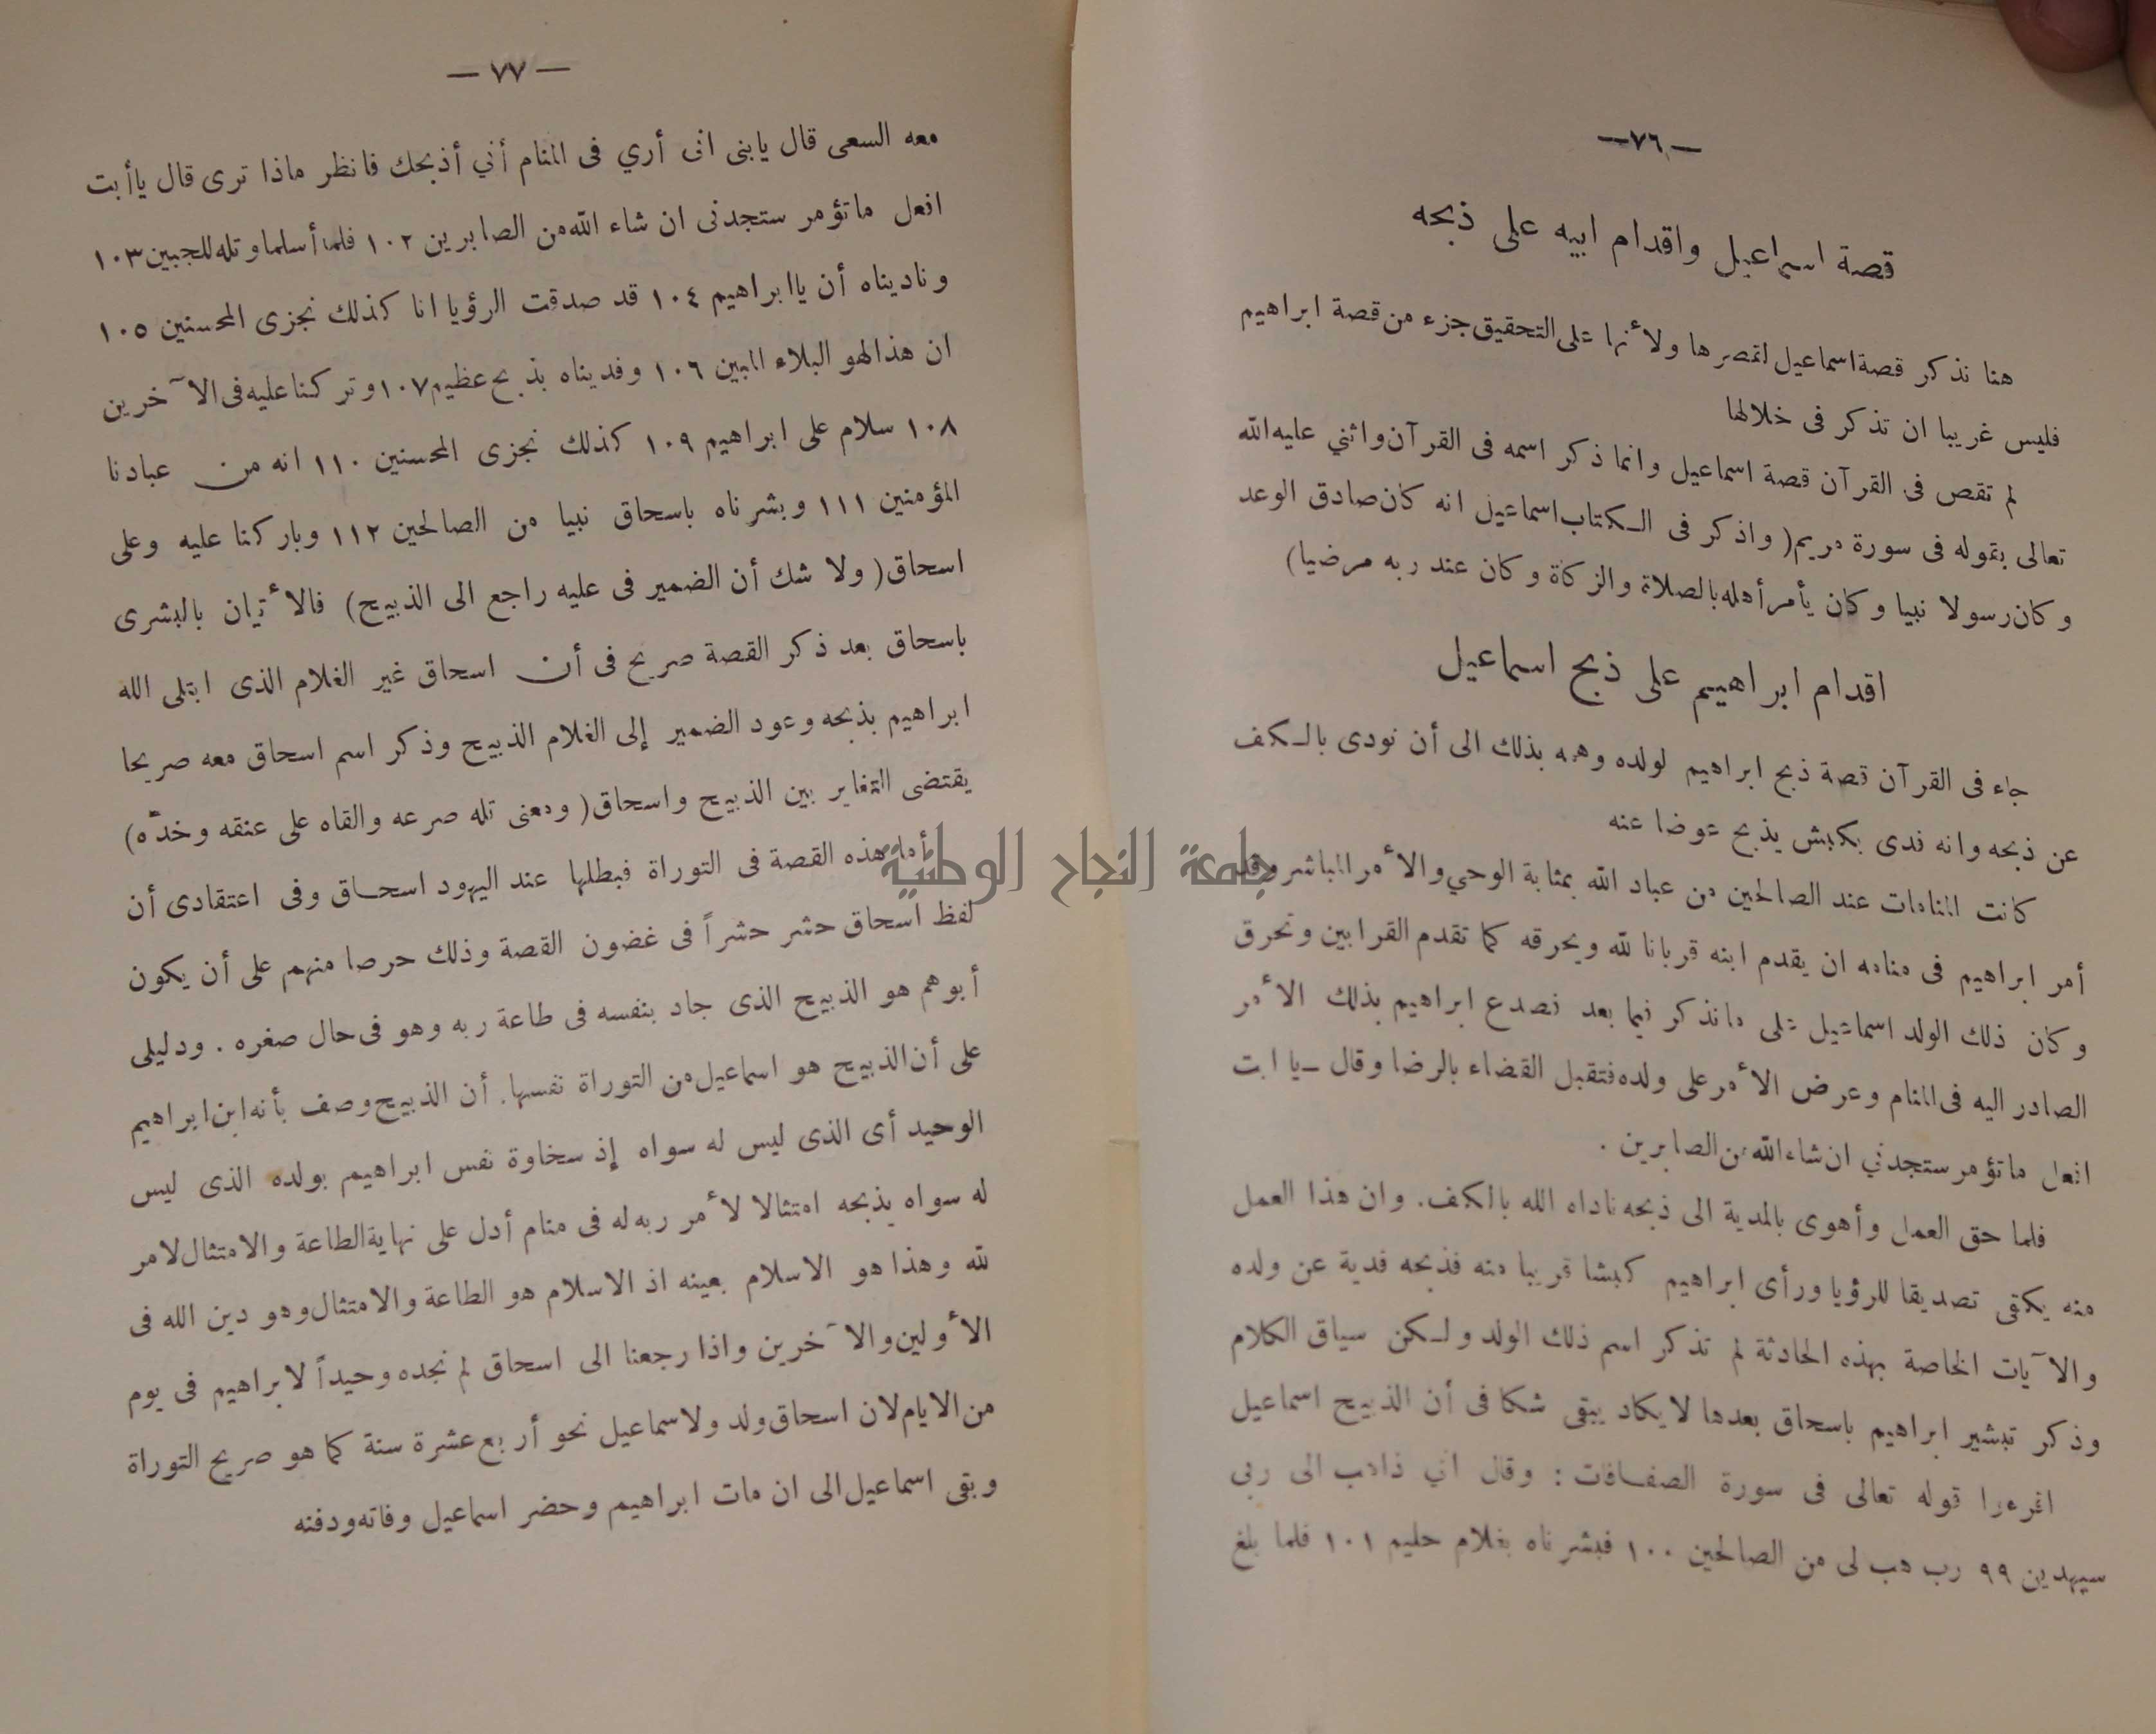 —٧٦—
قصة اسماعيل واقدام ابيه على ذبحه
هنا نذكر قصة اسماعيل لقصرها ولأنها على التحقيق جزء من قصة ابراهيم
فليس غريبا ان تذكر فى خلالها
لم تقص فى القرآن قصة اسماعيل وانما ذكر اسمه فى القرآن واثني عليه الله
تعالى بقوله فى سورة مريم (واذكر فى الكتاب اسماعيل انه كان صادق الوعد
وكان رسولا نبيا وكان يأمر أهله بالصلاة والزكاة وكان عند ربه مرضيا)
اقدام ابراهيم على ذبح اسماعيل
جاء فى القرآن قصة ذبح ابراهيم لولده وهمه بذلك الى أن نودى بالكف
عن ذبحه وانه فدى بكبش يذبح عوضا عنه
كانت المنامات عند الصالحين من عباد الله بمثابة الوحي والأمر المباشر وقد
أمر ابراهيم فى منامه ان يقدم ابنه قربانا لله ويحرقه كما تقدم القرابين وتحرق
وكان ذلك الولد اسماعيل على ما نذكر فيما بعد فصدع ابراهيم بذلك الأمر
الصادر اليه فى المنام وعرض الأمر على ولده فتقبل القضاء بالرضا وقال ـ يا ابت
افعل ما تؤمر ستجدني ان شاء الله من الصابرين .
فلما حق العمل وأهوى بالمدية الى ذبحه ناداه الله بالكف. وان هذا العمل
منه يكفى تصديقا للرؤيا ورأى ابراهيم كبشا قريبا منه فذبحه فدية عن ولده
والآيات الخاصة بهذه الحادثة لم تذكر اسم ذلك الولد ولكن سياق الكلام
وذكر تبشير ابراهيم باسحاق بعدها لا يكاد يبقى شكا فى أن الذبيح اسماعيل
اقرءوا قوله تعالى فى سورة الصفافات : وقال اني ذاهب الى ربى
سيهدين ٩٩ رب هب لى من الصالحين ١٠٠ فبشرناه بغلام حليم ١٠١ فلما بلغ
— ٧٧ —
معه السعى قال يابنى انى أري فى المنام أني أذبحك فانظر ماذا ترى قال ياأبت
افعل ماتؤمر ستجدنى ان شاء الله من الصابرين ١٠٢ فلما أسلما وتله للجبين ١٠٣
وناديناه أن ياابراهيم ١٠٤ قد صدقت الرؤيا انا كذلك نجزى المحسنين ١٠٥
ان هذا لهو البلاء المبين ١٠٦ وفديناه بذبح عظيم ١٠٧ وتركنا عليه فى الآخرين
١٠٨ سلام على ابراهيم ١٠٩ كذلك نجزى المحسنين ١١٠ انه من عبادنا
المؤمنين ١١١ وبشرناه باسحاق نبيا من الصالحين ١١٢ وباركنا عليه وعلى
اسحاق (ولا شك أن الضمير فى عليه راجع الى الذبيح) فالأتيان بالبشرى
باسحاق بعد ذكر القصة صريح فى أن اسحاق غير الغلام الذى ابتلى الله
ابراهيم بذبحه وعود الضمير إلى الغلام الذبيح وذكر اسم اسحاق معه صريحا
يقتضى التغاير بين الذبيح واسحاق (ومعنى تله صرعه والقاه على عنقه وخدّه)
أما هذه القصة فى التوراة فبطلها عند اليهود اسحاق وفى اعتقادى أن
لفظ اسحاق حشر حشراً فى غضون القصة وذلك حرصا منهم على أن يكون
أبوهم هو الذبيح الذى جاد بنفسه فى طاعة ربه وهو فى حال صغره . ودليلى
على أن الذبيح هو اسماعيل من التوراة نفسها. أن الذبيح وصف بأنه ابن ابراهيم
الوحيد أى الذى ليس له سواه إذ سخاوة نفس ابراهيم بولده الذى ليس
له سواه يذبحه امتثالا لأمر ربه له فى منام أدل على نهاية الطاعة والامتثال لامر
لله وهذا هو الاسلام بعينه اذ الاسلام هو الطاعة والامتثال وهو دين الله فى
الأولين والآخرين واذا رجعنا الى اسحاق لم نجده وحيداً لابراهيم فى يوم
من الايام لان اسحاق ولد ولاسماعيل نحو أربع عشرة سنة كما هو صريح التوراة
وبقى اسماعيل الى ان مات ابراهيم وحضر اسماعيل وفاته ودفنه
جامعة النجاح الوطنية